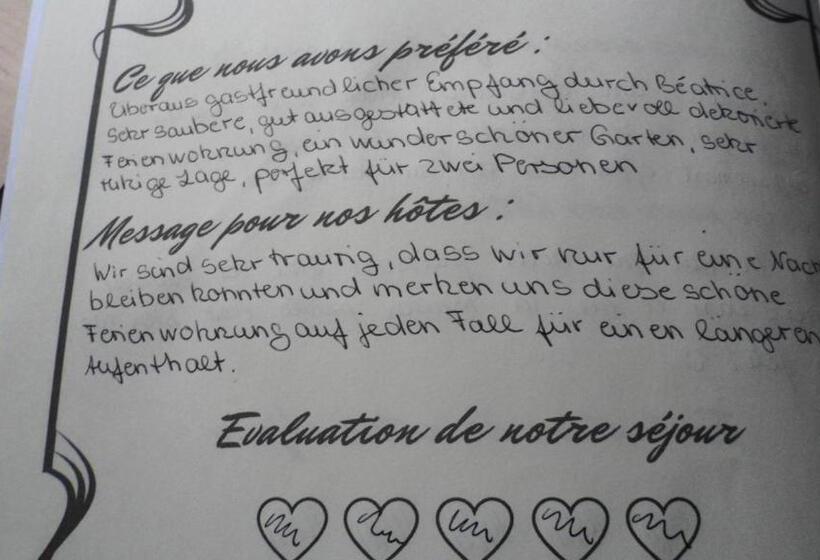 Ce que nous avons préféré :
Überaus gastfreundlicher Empfang durch Béatrice.
Sehr saubere, gut ausgestattete und liebevoll dekorierte
Ferienwohnung, ein wunderschöner Garten, sehr
ruhige Lage, perfekt für zwei Personen
Message pour nos hôtes :
Wir sind sehr traurig, dass wir nur für eine Nach
bleiben konnten und merken uns diese schöne
Ferienwohnung auf jeden Fall für einen längeren
Aufenthalt.
Evaluation de notre séjour